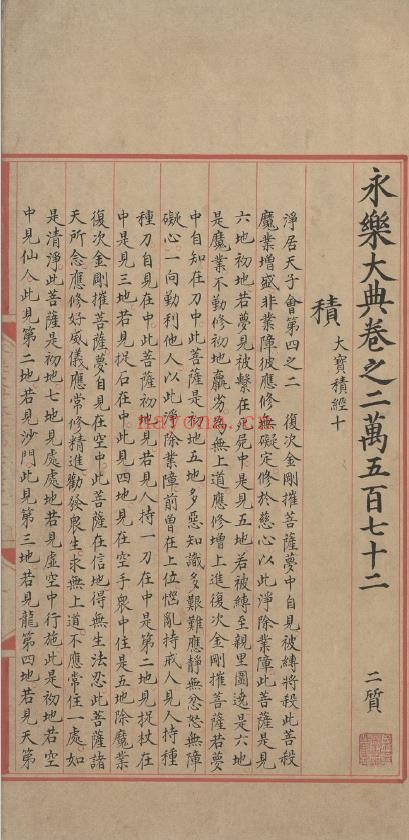 永樂大典卷之二萬五百七十二 二質
積 大寶積經十
淨居天子會第四之二 復次金剛摧菩薩夢中自見被縛將殺此菩殺
魔業增盛非業障彼應修無礙定修於慈心以此淨除業障此菩薩是見
六地初地若夢見被繫在死屍中是見五地若被縛至親里圍遶是六地
是魔業不勤修初地羸劣為無上道應修增上進復次金剛摧菩薩若夢
中自知在刀中此菩薩是初地五地多惡知識多艱難應靜無忿怒無障
礙心一向勤利他人以此淨除業障前曾在上位惱亂持戒人見人持種
種刀自見在中此菩薩初地見若見人持一刀在中是第二地見捉杖在
中是見三地若見捉石在中此見四地見在空手衆中住是五地除魔業
復次金剛摧菩薩夢自見在空中此菩薩在信地得無生法忍此菩薩諸
天所念應修好威儀應常修精進勸發衆生求無上道不應常住一處如
是清淨此菩薩是初地七地見處處地若見虛空中行施此是初地若空
中見仙人此見第二地若見沙門此見第三地若見龍第四地若見天第
nayona.cn